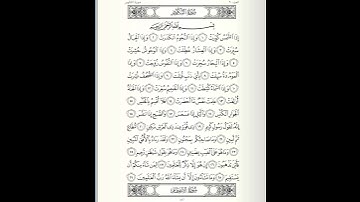 سُورَةُ التَّكْوِيرِ
بِسْمِ اللَّهِ الرَّحْمَٰنِ الرَّحِيمِ
إِذَا الشَّمْسُ كُوِّرَتْ ١ وَإِذَا النُّجُومُ انْكَدَرَتْ ٢ وَإِذَا الْجِبَالُ
سُيِّرَتْ ٣ وَإِذَا الْعِشَارُ عُطِّلَتْ ٤ وَإِذَا الْوُحُوشُ حُشِرَتْ
٥ وَإِذَا الْبِحَارُ سُجِّرَتْ ٦ وَإِذَا النُّفُوسُ زُوِّجَتْ ٧ وَإِذَا
الْمَوْءُودَةُ سُئِلَتْ ٨ بِأَيِّ ذَنْبٍ قُتِلَتْ ٩ وَإِذَا الصُّحُفُ نُشِرَتْ
١٠ وَإِذَا السَّمَاءُ كُشِطَتْ ١١ وَإِذَا الْجَحِيمُ سُعِّرَتْ ١٢ وَإِذَا الْجَنَّةُ
أُزْلِفَتْ ١٣ عَلِمَتْ نَفْسٌ مَا أَحْضَرَتْ ١٤ فَلَا أُقْسِمُ بِالْخُنَّسِ ١٥
الْجَوَارِ الْكُنَّسِ ١٦ وَاللَّيْلِ إِذَا عَسْعَسَ ١٧ وَالصُّبْحِ إِذَا تَنَفَّسَ ١٨
إِنَّهُ لَقَوْلُ رَسُولٍ كَرِيمٍ ١٩ ذِي قُوَّةٍ عِنْدَ ذِي الْعَرْشِ مَكِينٍ ٢٠ مُطَاعٍ
ثَمَّ أَمِينٍ ٢١ وَمَا صَاحِبُكُمْ بِمَجْنُونٍ ٢٢ وَلَقَدْ رَآهُ بِالْأُفُقِ الْمُبِينِ
٢٣ وَمَا هُوَ عَلَى الْغَيْبِ بِضَنِينٍ ٢٤ وَمَا هُوَ بِقَوْلِ شَيْطَانٍ رَجِيمٍ ٢٥
فَأَيْنَ تَذْهَبُونَ ٢٦ إِنْ هُوَ إِلَّا ذِكْرٌ لِلْعَالَمِينَ ٢٧ لِمَنْ شَاءَ مِنْكُمْ أَنْ
يَسْتَقِيمَ ٢٨ وَمَا تَشَاءُونَ إِلَّا أَنْ يَشَاءَ اللَّهُ رَبُّ الْعَالَمِينَ ٢٩
سُورَةُ الانفِطَارِ